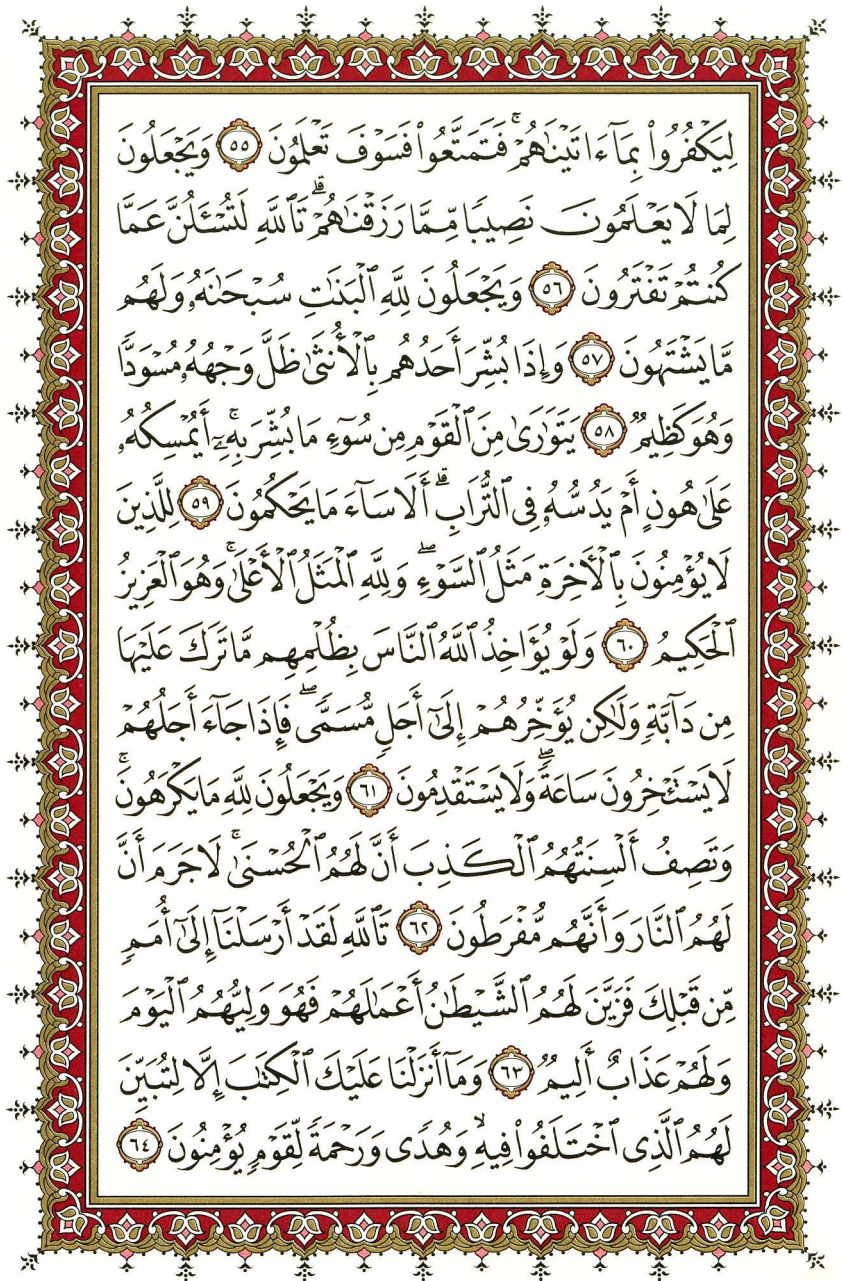 لِيَكْفُرُوا۟ بِمَآ ءَاتَيْنَٰهُمْ ۚ فَتَمَتَّعُوا۟ فَسَوْفَ تَعْلَمُونَ ٥٥ وَيَجْعَلُونَ
لِمَا لَا يَعْلَمُونَ نَصِيبًا مِّمَّا رَزَقْنَٰهُمْ ۗ تَٱللَّهِ لَتُسْـَٔلُنَّ عَمَّا
كُنتُمْ تَفْتَرُونَ ٥٦ وَيَجْعَلُونَ لِلَّهِ ٱلْبَنَٰتِ سُبْحَٰنَهُۥ وَلَهُم
مَّا يَشْتَهُونَ ٥٧ وَإِذَا بُشِّرَ أَحَدُهُم بِٱلْأُنثَىٰ ظَلَّ وَجْهُهُۥ مُسْوَدًّا
وَهُوَ كَظِيمٌ ٥٨ يَتَوَٰرَىٰ مِنَ ٱلْقَوْمِ مِن سُوٓءِ مَا بُشِّرَ بِهِۦٓ ۚ أَيُمْسِكُهُۥ
عَلَىٰ هُونٍ أَمْ يَدُسُّهُۥ فِى ٱلتُّرَابِ ۗ أَلَا سَآءَ مَا يَحْكُمُونَ ٥٩ لِلَّذِينَ
لَا يُؤْمِنُونَ بِٱلْءَاخِرَةِ مَثَلُ ٱلسَّوْءِ ۖ وَلِلَّهِ ٱلْمَثَلُ ٱلْأَعْلَىٰ ۚ وَهُوَ ٱلْعَزِيزُ
ٱلْحَكِيمُ ٦٠ وَلَوْ يُؤَاخِذُ ٱللَّهُ ٱلنَّاسَ بِظُلْمِهِم مَّا تَرَكَ عَلَيْهَا
مِن دَآبَّةٍ وَلَٰكِن يُؤَخِّرُهُمْ إِلَىٰٓ أَجَلٍ مُّسَمًّى ۖ فَإِذَا جَآءَ أَجَلُهُمْ
لَا يَسْتَـْٔخِرُونَ سَاعَةً ۖ وَلَا يَسْتَقْدِمُونَ ٦١ وَيَجْعَلُونَ لِلَّهِ مَا يَكْرَهُونَ ۚ
وَتَصِفُ أَلْسِنَتُهُمُ ٱلْكَذِبَ أَنَّ لَهُمُ ٱلْحُسْنَىٰ ۚ لَا جَرَمَ أَنَّ
لَهُمُ ٱلنَّارَ وَأَنَّهُم مُّفْرَطُونَ ٦٢ تَٱللَّهِ لَقَدْ أَرْسَلْنَآ إِلَىٰٓ أُمَمٍ
مِّن قَبْلِكَ فَزَيَّنَ لَهُمُ ٱلشَّيْطَٰنُ أَعْمَٰلَهُمْ فَهُوَ وَلِيُّهُمُ ٱلْيَوْمَ
وَلَهُمْ عَذَابٌ أَلِيمٌ ٦٣ وَمَآ أَنزَلْنَا عَلَيْكَ ٱلْكِتَٰبَ إِلَّا لِتُبَيِّنَ
لَهُمُ ٱلَّذِى ٱخْتَلَفُوا۟ فِيهِ ۙ وَهُدًى وَرَحْمَةً لِّقَوْمٍ يُؤْمِنُونَ ٦٤